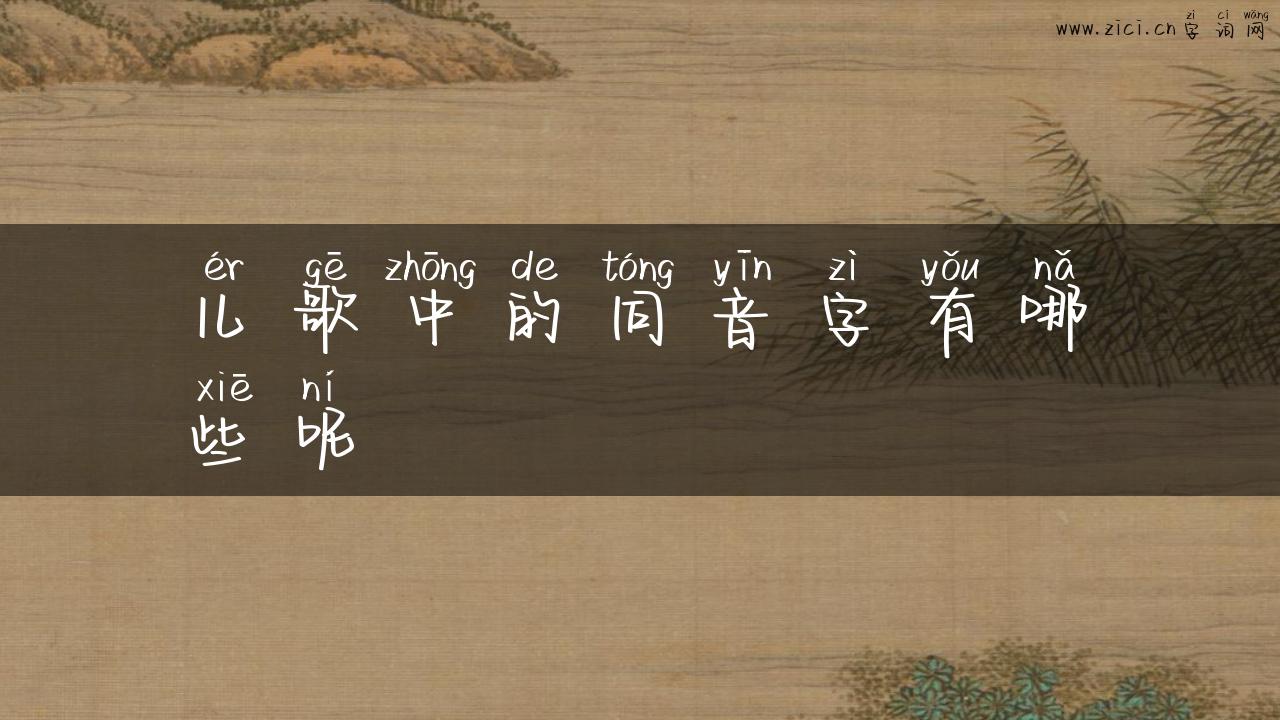 zì cí wǎng
www.zici.cn 字词网
ér gē zhōng de tóng yīn zì yǒu nǎ
儿歌中的同音字有哪
xiē ní
些呢